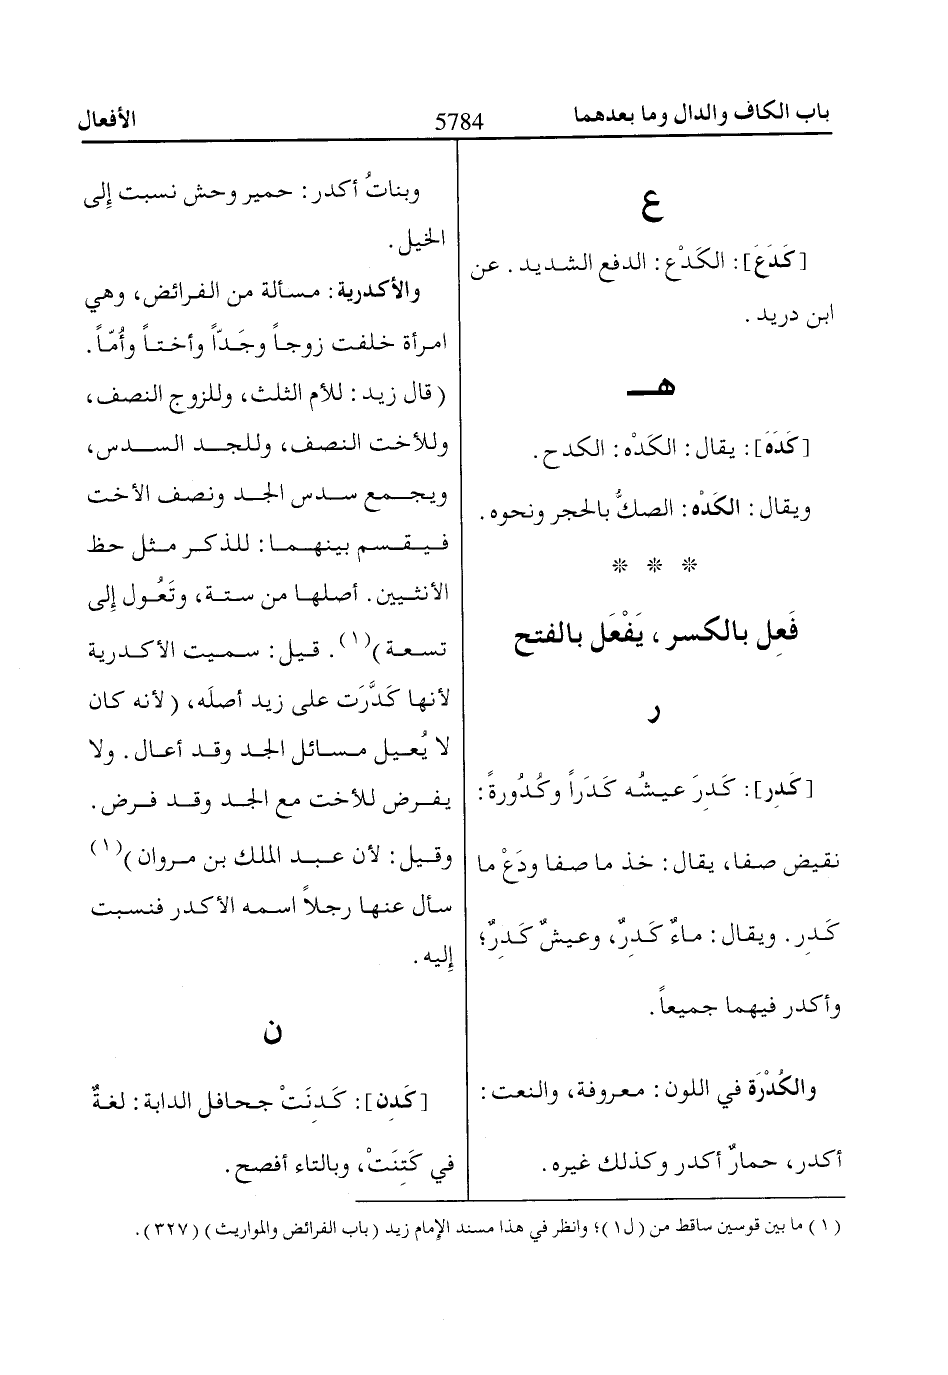 باب الكاف والدال وما بعدهما
5784
الأفعال
ع
[كَدَعَ]: الكَدْع: الدفع الشديد. عن
ابن دريد.
هـ
[كَدَهَ]: يقال: الكَدْه: الكدح.
ويقال: الكَدْه: الصكُّ بالحجر ونحوه.
* * *
فَعِل بالكسر، يَفْعَل بالفتح
ر
[كَدِر]: كَدِرَ عيشُه كَدَراً وكُدُورةً:
نقيض صفا، يقال: خذ ما صفا ودَعْ ما
كَدِر. ويقال: ماءٌ كَدِرٌ، وعيشٌ كَدِرٌ؛
وأكدر فيهما جميعاً.
والكُدْرَة في اللون: معروفة، والنعت:
أكدر، حمارٌ أكدر وكذلك غيره.
وبناتُ أكدر: حمير وحش نسبت إلى
الخيل.
والأكدرية: مسألة من الفرائض، وهي
امرأة خلفت زوجاً وجَدّاً وأختاً وأُمّاً.
(قال زيد: للأم الثلث، وللزوج النصف،
وللأخت النصف، وللجد السدس،
ويجمع سدس الجد ونصف الأخت
فيقسم بينهما: للذكر مثل حظ
الأنثيين. أصلها من ستة، وتَعُول إلى
تسعة)(١). قيل: سميت الأكدرية
لأنها كَدَّرَت على زيد أصلَه، (لأنه كان
لا يُعيل مسائل الجد وقد أعال. ولا
يفرض للأخت مع الجد وقد فرض.
وقيل: لأن عبد الملك بن مروان)(١)
سأل عنها رجلاً اسمه الأكدر فنسبت
إليه.
ن
[كَدِن]: كَدِنَتْ جحافل الدابة: لغةٌ
في كَتِنَتْ، وبالتاء أفصح.
(١) ما بين قوسين ساقط من (ل١)؛ وانظر في هذا مسند الإمام زيد (باب الفرائض والمواريث) (٣٢٧).